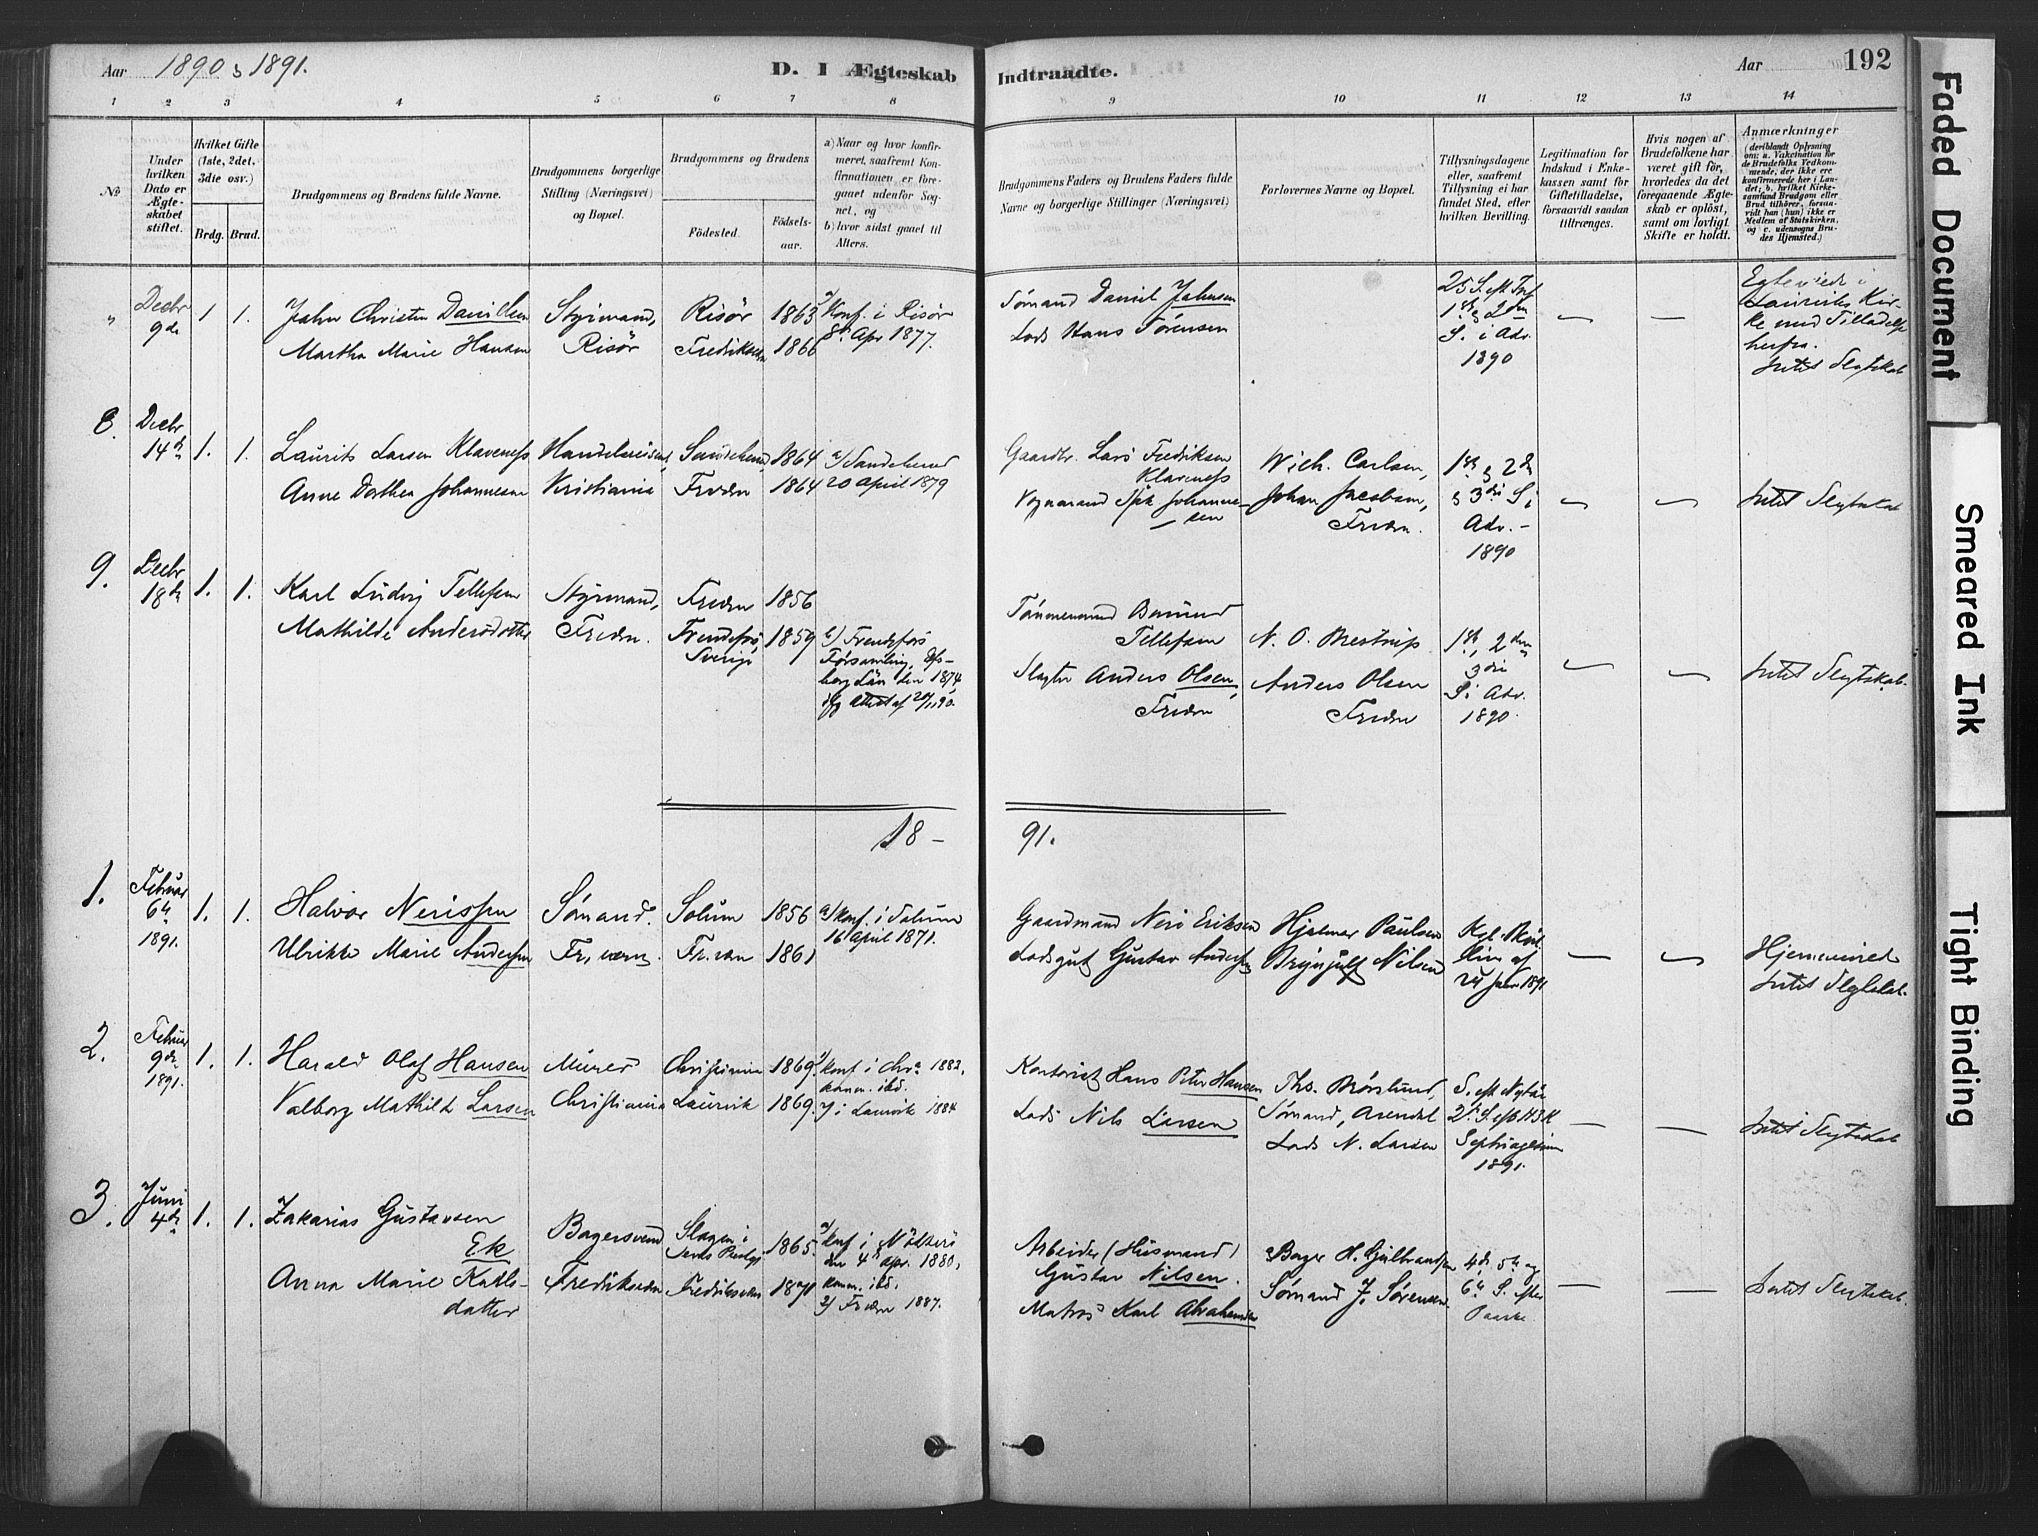 Aar 1890 & 1891.
D. I Ægteskab Indtraadte.
Aar 192
1 2 3 4 5 6 7 8 9 10 11 12 13 14
No
Under hvilken Dato er Ægteskabet stiftet.
Hvilket Gifte (1ste, 2det, 3die osv.)
Brdg. Brud.
Brudgommens og Brudens fulde Navne.
Brudgommens borgerlige Stilling (Næringsvei) og Bopæl.
Brudgommens og Brudens
Födested. Födselsaar.
a) Naar og hvor konfirmeret, saafremt Konfirmationen er foregaaet udenfor Sognet, og
b) hvor sidst gaaet til Alters.
Brudgommens Faders og Brudens Faders fulde Navne og borgerlige Stillinger (Næringsvei)
Forlovernes Navne og Bopæl.
Tillysningsdagene eller, saafremt Tillysning ei har fundet Sted, efter hvilken Bevilling.
Legitimation for Indskud i Enkekassen samt for Giftetilladelse, forsaavidt saadan tiltrænges.
Hvis nogen af Brudefolkene har været gift för, hvorledes da det foregaaende Ægteskab er oplöst, samt om lovligt Skifte er holdt.
Anmærkninger
(deriblandt Oplysning om: a. Vakcination for de Brudefolks Vedkommende, der ikke ere konfirmerede her i Landet; b. hvilket Kirkesamfund Brudgom eller Brud tilhörer, forsaavidt han (hun) ikke er Medlem af Statskirken, og c. udensogns Brudes Hjemsted.)
" Decbr 9de 1 1.
Jahn Christen Danielsen
Martha Marie Hansen
Styrmand,
Risör
Risör 1863
Fredriksværn 1866
a/ Konf. i Risör
8de Apr 1877.
Sömand Daniel Jahnsen
Lods Hans Sörensen
25 S. eft. Tref
1ste & 2den
S. i Adv.
1890
Egteviede i
Laurviks Kirke
med Tilladelse
herfra.
Intet Slegtskab
8. Decbr 14de 1. 1.
Laurits Larsen Klaveness
Anne Dorthea Johannesen
Handelsreisende,
Kristiania
Sandeherred 1864
Frværn 1864
a/ Sandeherred
20 April 1879
Gaardbr. Lars Fredriksen
Klaveness
Vognmand Isak Johannesen
Wich. Carlsen,
Johan Jacobsen,
Frværn.
1ste & 2den
& 3die S. i
Adv.
1890
Intet Slegtskab
9. Decbr 18de 1. 1.
Karl Ludvig Tellefsen
Mathilde Andersdotter
Styrmand,
Frværn.
Frværn 1856
Frendefors, 1859
Sverige
a/ Frendefors
Församling, Elfsborg
Län den 1874,
Tømmermand
Tellefsen
Slagter Anders Olsen,
Frværn
N. O. Brestrup
Anders Olsen
Frværn
1ste, 2den
3die
S. i Adv.
1890.
Intet Slegtskab.
18 - 91.
1. Februar 6te 1891. 1. 1.
Halvor Nerissen
Ulrikke Marie Andersen
Sömand.
Fr.værn.
Solum 1856
Fr.værn 1861
a/ Konf. i Solum
16 April 1871.
Gaardmand Neri Eriksen
Lodsgut Gustav Andersen
Hjalmar Paulsen
Brynjulf Nilsen
Kgl. Bevil-
ling af
24 Janr 1891
Hjemmeviet
Intet Slegtskab.
2. Februar 9de 1891. 1. 1.
Harald Olaf Hansen
Valborg Mathilde Larsen
Murer
Christiania
Christiania 1869.
Laurvik 1869.
Konf i Chra 1882,
komm. ibd.
i Laurvik 1884
Kontorist Hans Peter Hansen
Lods Nils Larsen
Ths. Börslund,
Sömand, Arendal
Lods N. Larsen
S. eft Nytår
Septuagesima
1891.
Intet Slegtskab
3. Juni 4de 1. 1.
Zakarias Gustavsen
Ek
Anna Marie Karls-
datter
Bagersvend
Fredriksværn
Slagen i 1865.
Fredriksværn 1871
a/ Konf i Nötterö
den 4de Apr. 1880,
komm. ibd.
2/ Frværn 1887.
Arbeider (Husmand)
Gustav Nilsen.
Matros Karl Abrahamsen
Bager H. Gulbrandsen
Sömand J. Sörensen
4de, 5te og
6te S. efter
Paaske
Intet Slegtskab.
Faded Document
Smeared Ink
Tight Binding